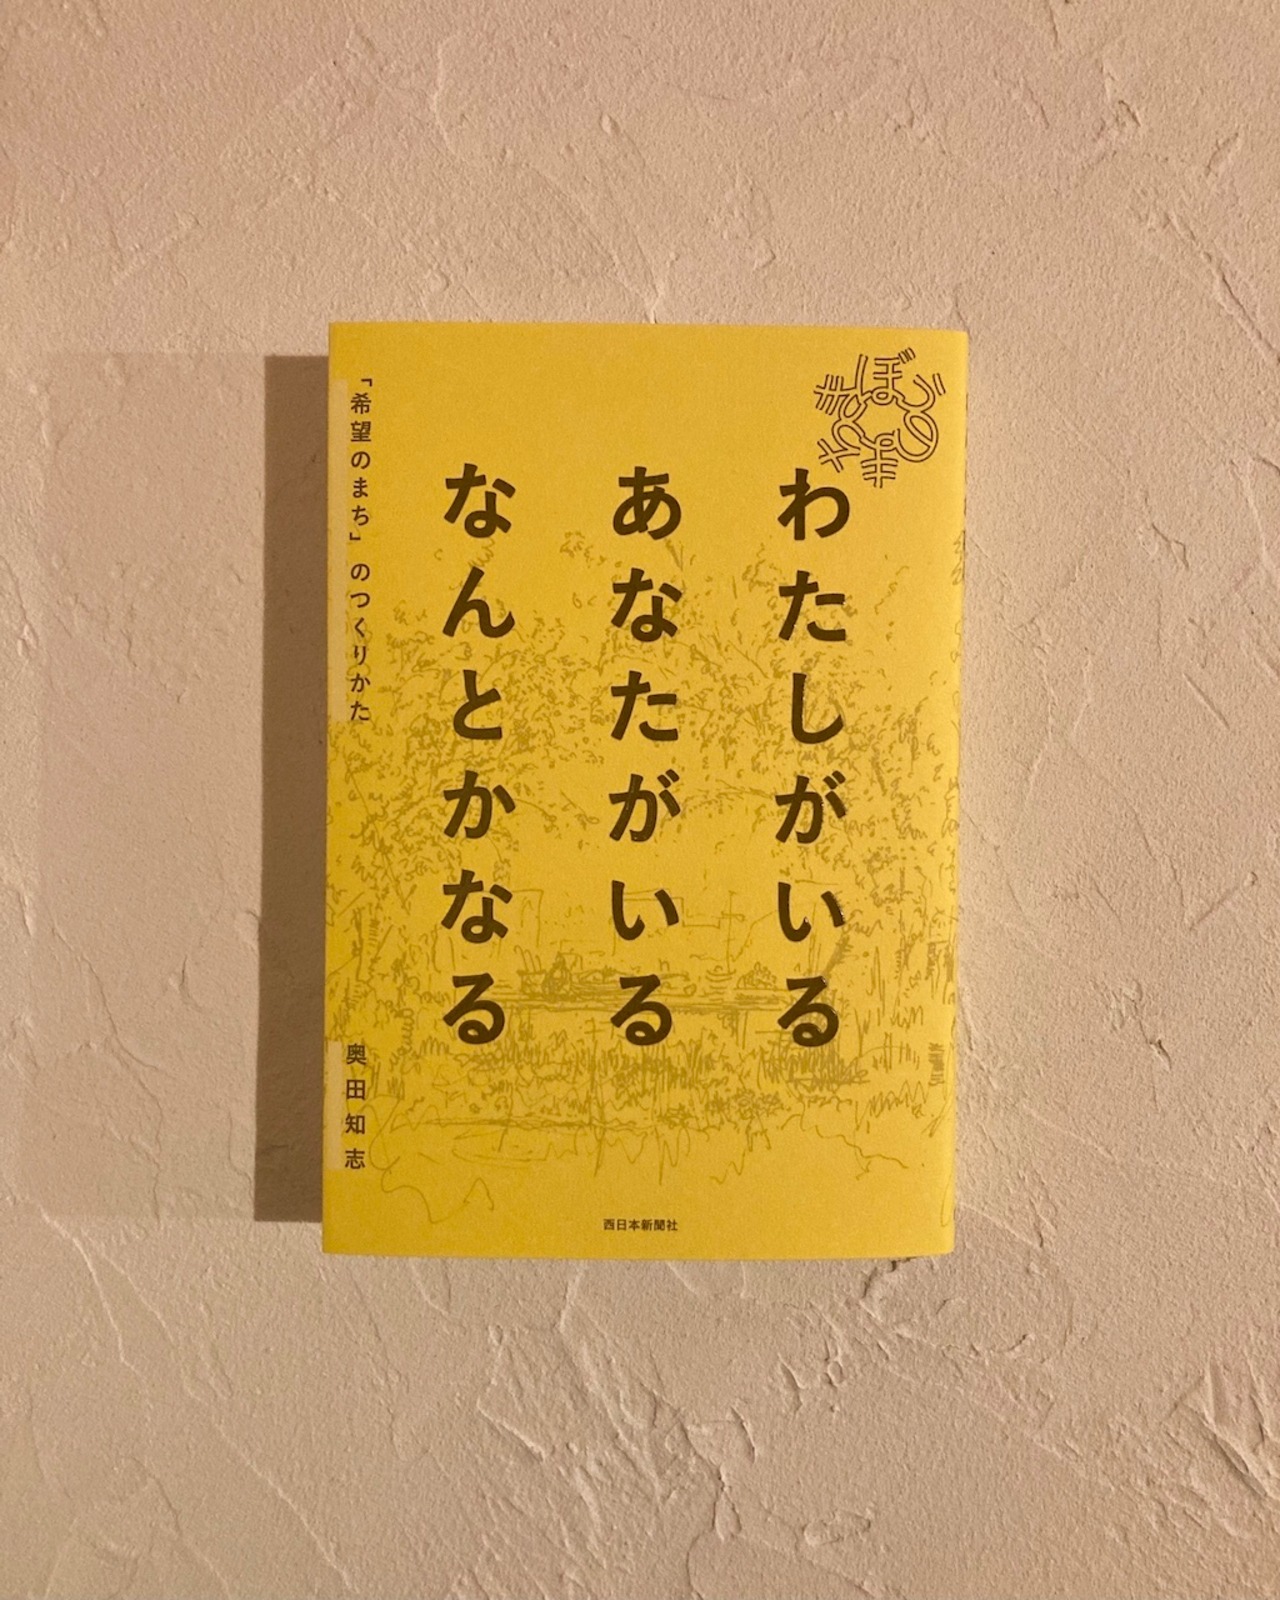 きぼうのまち
わたしがいる
あなたがいる
なんとかなる
「希望のまち」のつくりかた
奥田知志
西日本新聞社